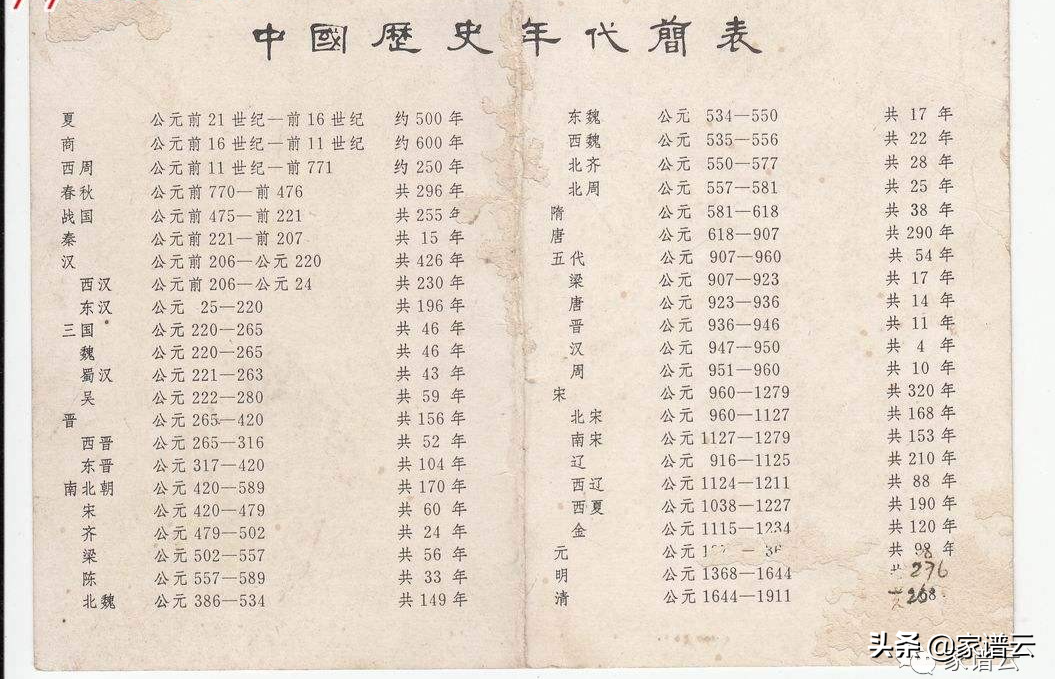 中國歷史年代簡表
夏 公元前 21 世纪—前 16 世纪 约 500 年
商 公元前 16 世纪—前 11 世纪 约 600 年
西周 公元前 11 世纪—前 771 约 250 年
春秋 公元前 770—前 476 共 296 年
战国 公元前 475—前 221 共 255 年
秦 公元前 221—前 207 共 15 年
汉 公元前 206—公元 220 共 426 年
西汉 公元前 206—公元 24 共 230 年
东汉 公元 25—220 共 196 年
三国 公元 220—265 共 46 年
魏 公元 220—265 共 46 年
蜀汉 公元 221—263 共 43 年
吴 公元 222—280 共 59 年
晋 公元 265—420 共 156 年
西晋 公元 265—316 共 52 年
东晋 公元 317—420 共 104 年
南北朝 公元 420—589 共 170 年
宋 公元 420—479 共 60 年
齐 公元 479—502 共 24 年
梁 公元 502—557 共 56 年
陈 公元 557—589 共 33 年
北魏 公元 386—534 共 149 年
东魏 公元 534—550 共 17 年
西魏 公元 535—556 共 22 年
北齐 公元 550—577 共 28 年
北周 公元 557—581 共 25 年
隋 公元 581—618 共 38 年
唐 公元 618—907 共 290 年
五代 公元 907—960 共 54 年
梁 公元 907—923 共 17 年
唐 公元 923—936 共 14 年
晋 公元 936—946 共 11 年
汉 公元 947—950 共 4 年
周 公元 951—960 共 10 年
宋 公元 960—1279 共 320 年
北宋 公元 960—1127 共 168 年
南宋 公元 1127—1279 共 153 年
辽 公元 916—1125 共 210 年
西辽 公元 1124—1211 共 88 年
西夏 公元 1038—1227 共 190 年
金 公元 1115—1234 共 120 年
元 公元 共 98 年
明 公元 1368—1644 共 276
清 公元 1644—1911 268
头条 @家谱云
家谱云